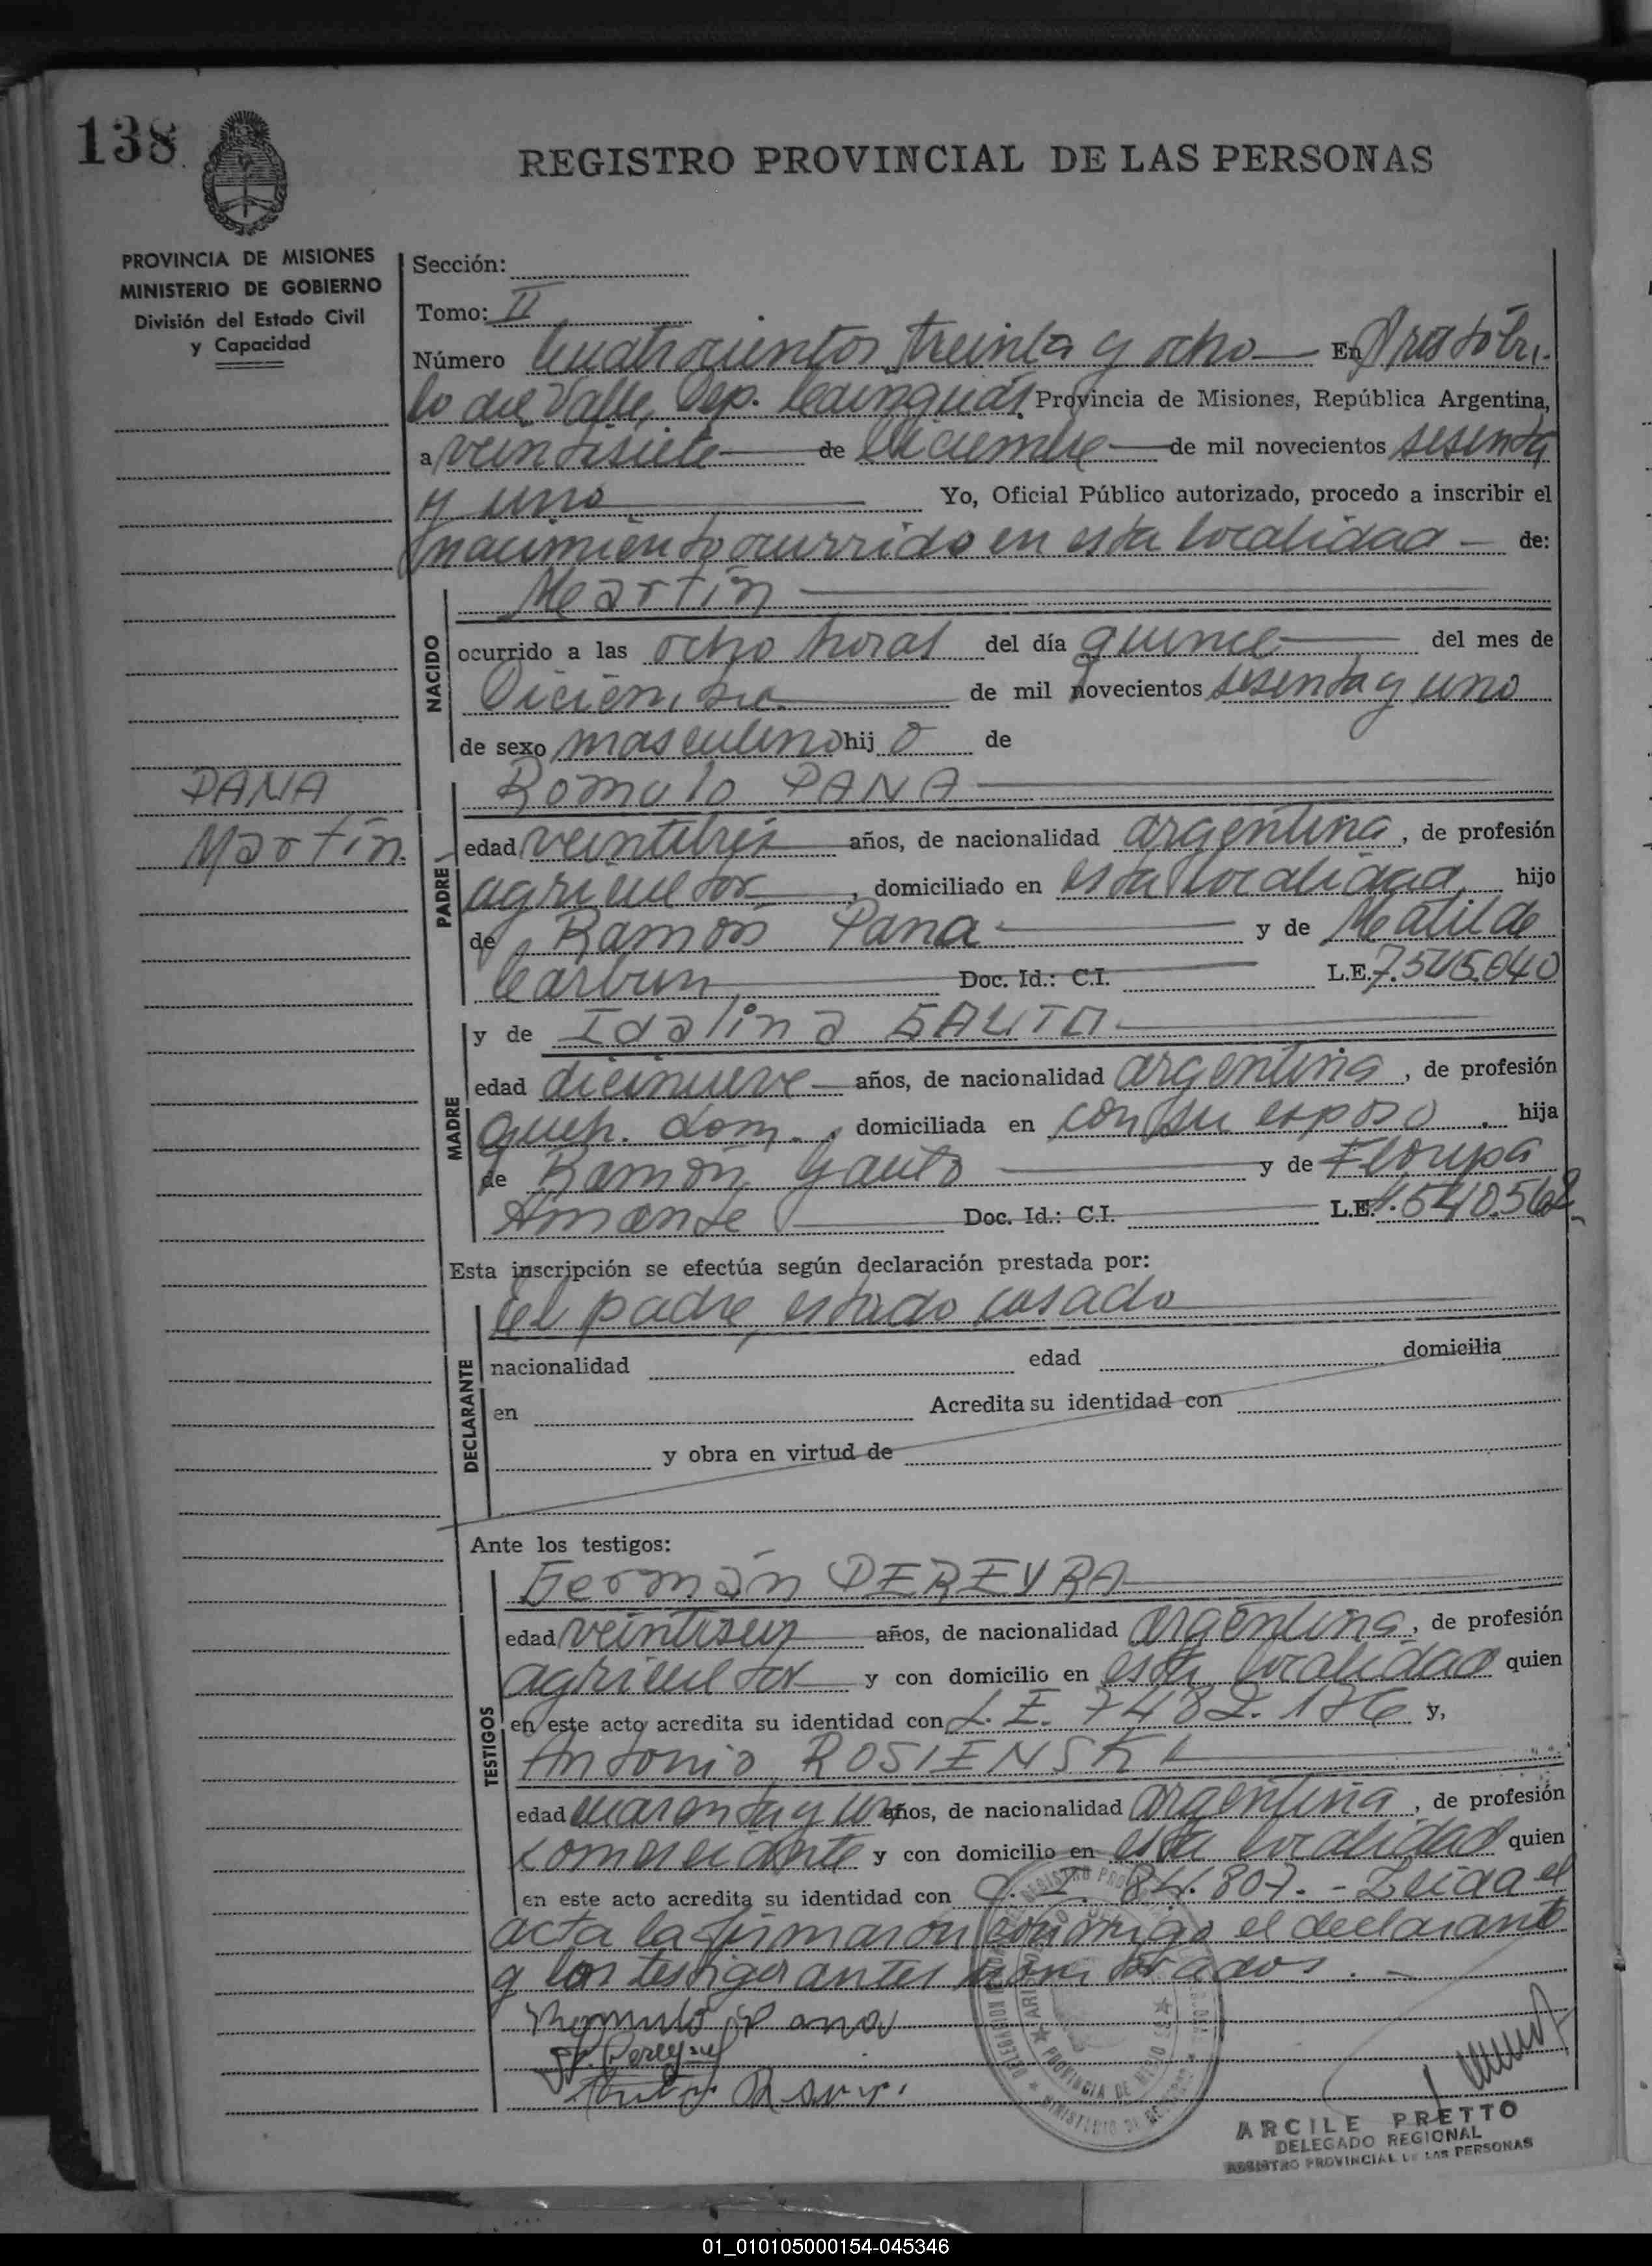 138
REGISTRO PROVINCIAL DE LAS PERSONAS
PROVINCIA DE MISIONES
MINISTERIO DE GOBIERNO
División del Estado Civil
y Capacidad
Sección:
Tomo: II
Número Cuatrocientos treinta y ocho En Aristóbu-
lo del Valle, Dep. Cainguás Provincia de Misiones, República Argentina,
a veintisiete de Diciembre de mil novecientos sesenta
y uno Yo, Oficial Público autorizado, procedo a inscribir el
nacimiento ocurrido en esta localidad de:
NACIDO
Martín
ocurrido a las ocho horas del día quince del mes de
Diciembre de mil novecientos sesenta y uno
de sexo masculino hijo de
PANA
Martín.
PADRE
Rómulo PANA
edad veintitrés años, de nacionalidad argentina, de profesión
agricultor, domiciliado en esta localidad, hijo
de Ramón Pana y de Matilde
Doc. Id.: C.I. L.E. 7.545.040
MADRE
y de Idalina GAUTO
edad diecinueve años, de nacionalidad argentina, de profesión
queh. dom., domiciliada en con su esposo. hija
de Ramón Gauto y de
Amante Doc. Id.: C.I. L.E. 4.540.562
Esta inscripción se efectúa según declaración prestada por:
DECLARANTE
el padre, estado casado
nacionalidad edad domicilia
en Acredita su identidad con
y obra en virtud de
Ante los testigos:
TESTIGOS
Germán PEREYRA
edad veintiseis años, de nacionalidad argentina, de profesión
agricultor y con domicilio en esta localidad quien
en este acto acredita su identidad con L.E. 7482.176 y,
Antonio ROSIENSKI
edad cuarenta y un años, de nacionalidad argentina, de profesión
comerciante y con domicilio en esta localidad quien
en este acto acredita su identidad con C.I. 84.807. - Leida el
acta la firmaron conmigo el declarante
y los testigos antes nombrados. -
Romulo Pana
ARCILE PRETTO
DELEGADO REGIONAL
REGISTRO PROVINCIAL DE LAS PERSONAS
01_010105000154-045346